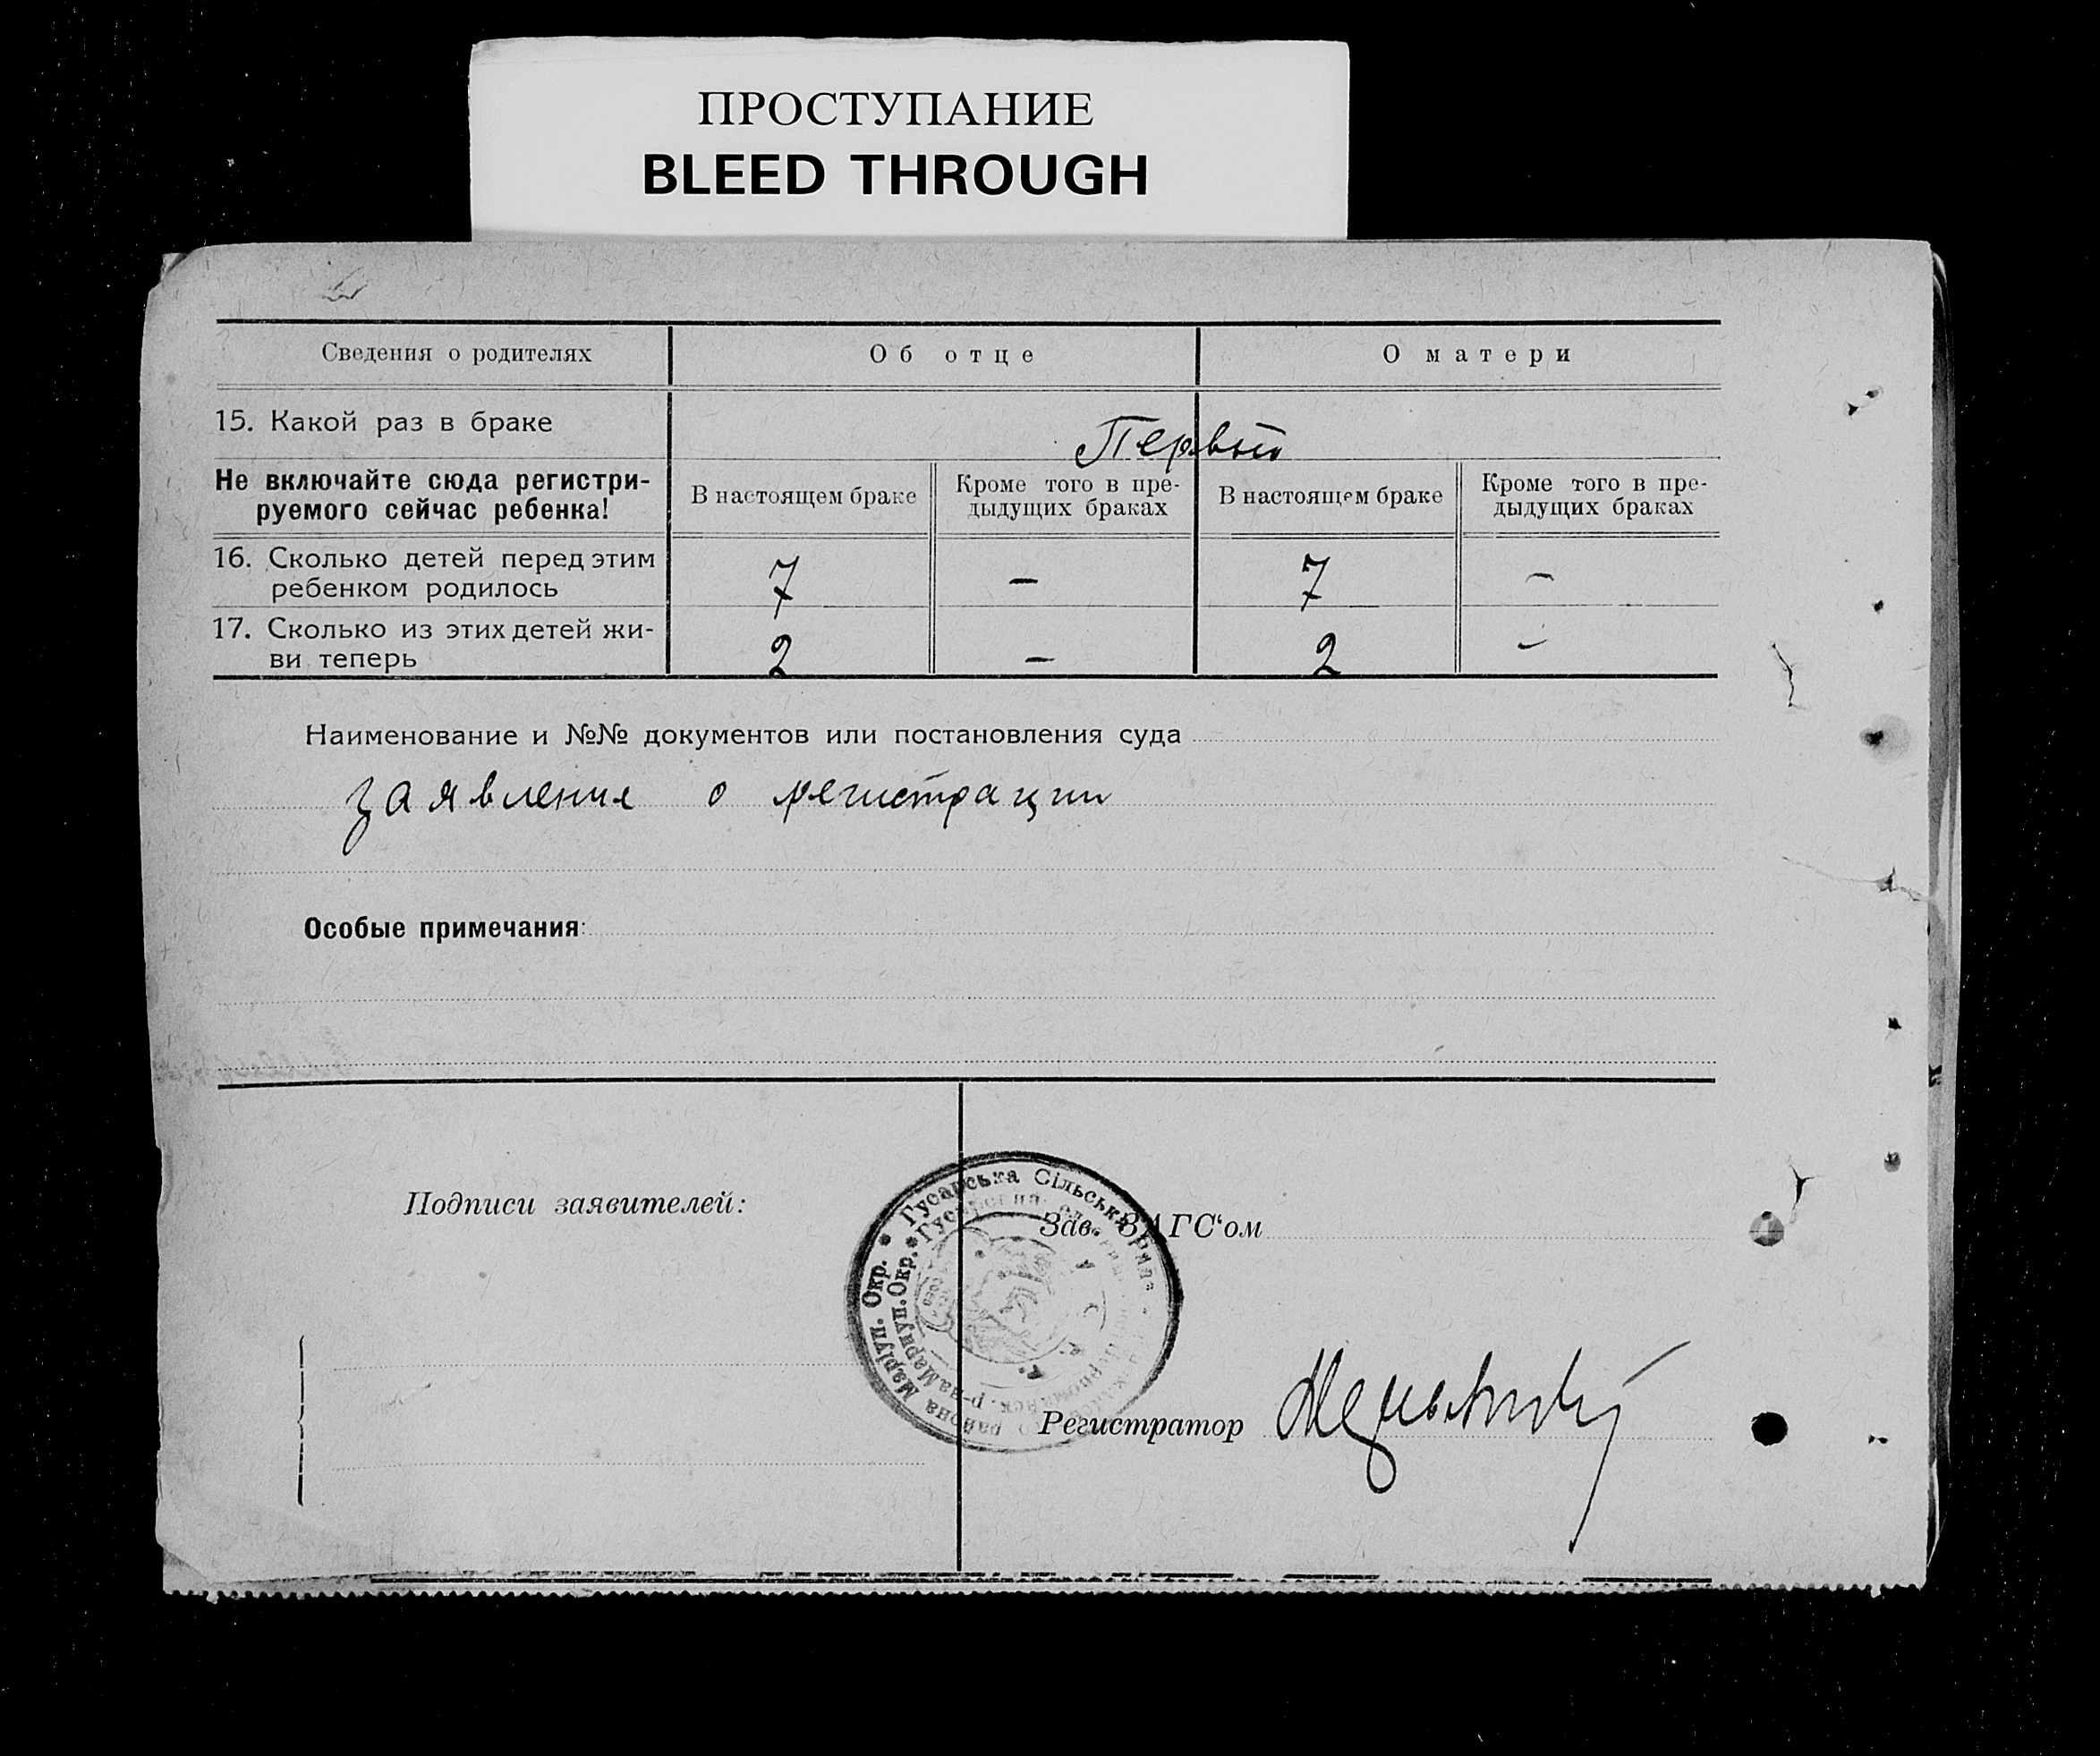 ПРОСТУПАНИЕ
BLEED THROUGH
Сведения о родителях Об отце О матери
15. Какой раз в браке Первый
Не включайте сюда регистри-
руемого сейчас ребенка!
В настоящем браке
Кроме того в пре-
дыдущих браках
В настоящем браке
Кроме того в пре-
дыдущих браках
16. Сколько детей перед этим
ребенком родилось 7 – 7 –
17. Сколько из этих детей жи-
ви теперь 2 – 2 –
Наименование и №№ документов или постановления суда
заявление о регистрации
Особые примечания:
Подписи заявителей:
Зав. ЗАГС‘ом
Регистратор
Гусарська Сільська Рада
района Маріуп. Окр.
р-на Мариуп. Окр.